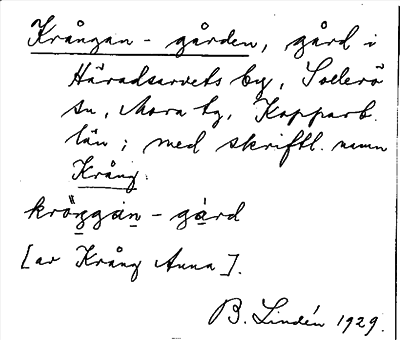 Krångan-gården, gård i
Häradsarvets by, Sollerö
sn, Mora tg, Kopparb.
län; med skriftl. namn
Krång.
krö̀ŋgàn-gàrd
[av Krång Anna].
B. Lindén 1929.